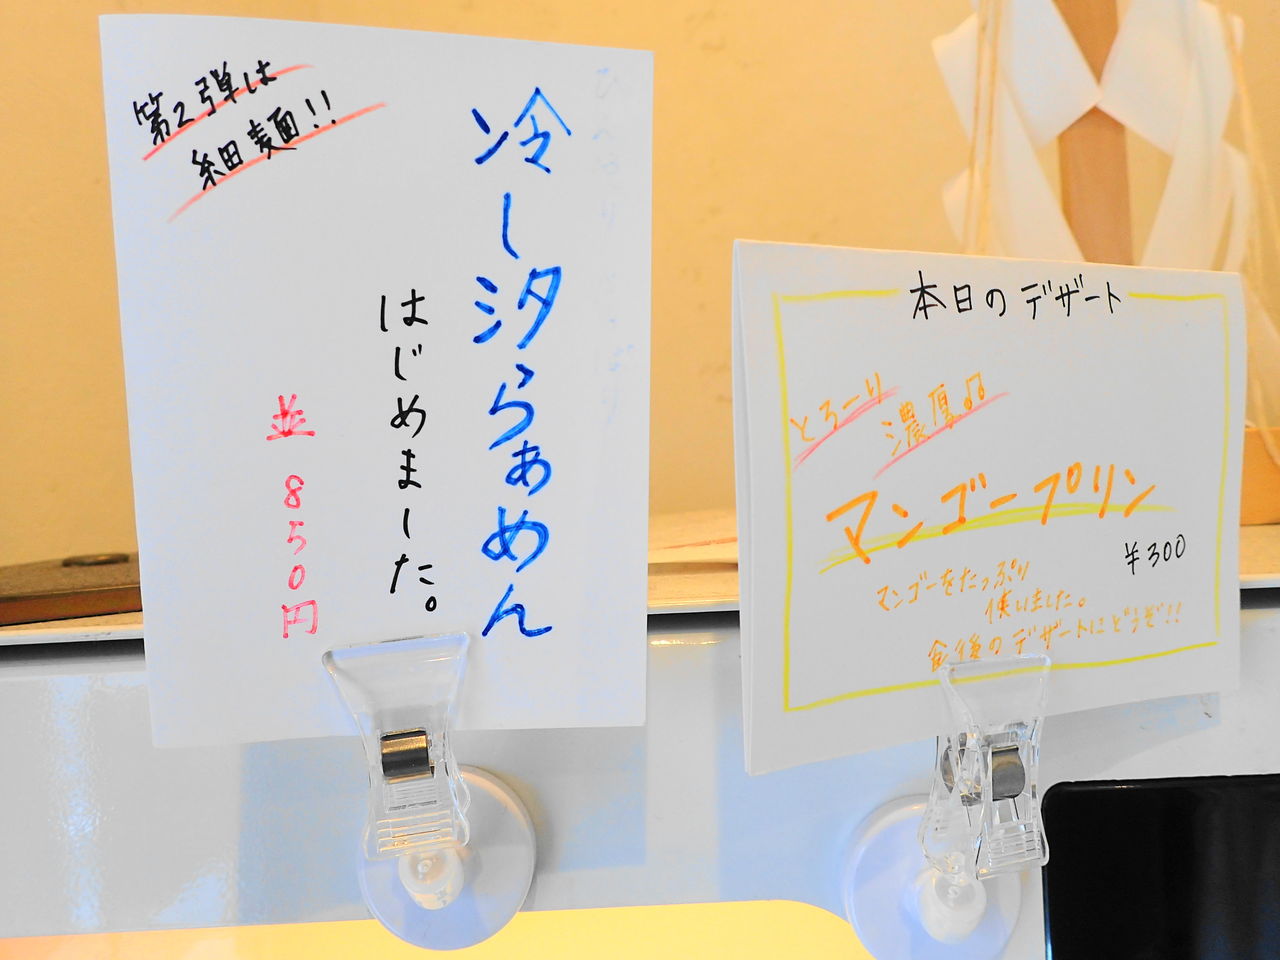 第2弾は
細麺!!
冷し汐らぁめん
はじめました。
並 850円
本日のデザート
とろーり
濃厚♫
マンゴープリン
¥300
マンゴーをたっぷり
使いました。
食後のデザートにどうぞ!!